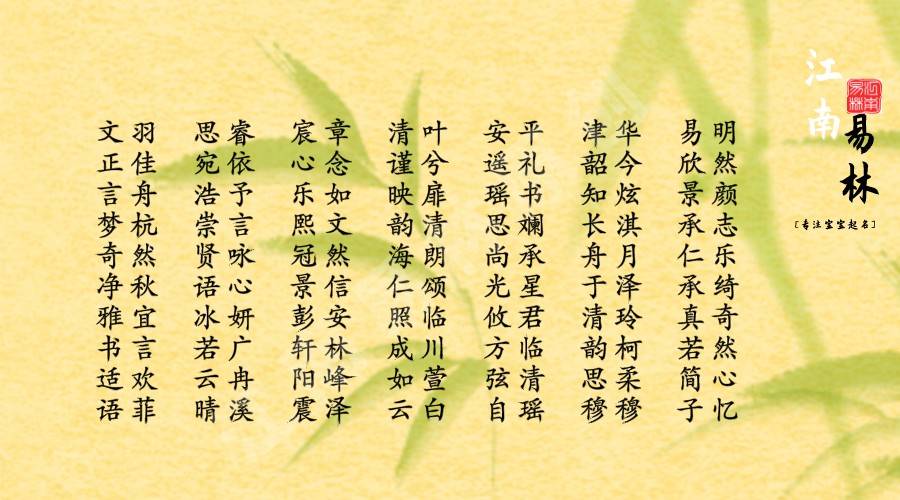 文羽 思睿 宸章 清叶 安平 津华 易明
正佳 宛依 心念 谨兮 遥礼 韶今 欣然
言舟 浩予 乐如 映扉 瑶书 知炫 景颜
梦杭 崇言 熙文 韵清 思斓 长淇 承志
奇然 贤咏 冠然 海朗 尚承 舟月 仁乐
净秋 语心 景信 仁颂 光星 于泽 承绮
雅宜 冰妍 彭安 照临 攸君 清玲 真奇
书言 若广 轩林 成川 方临 韵柯 若然
适欢 云冉 阳峰 如萱 弦清 思柔 简心
语菲 晴溪 震泽 云白 自瑶 穆穆 子忆
江南
江南易林
易林
[专注宝宝起名]